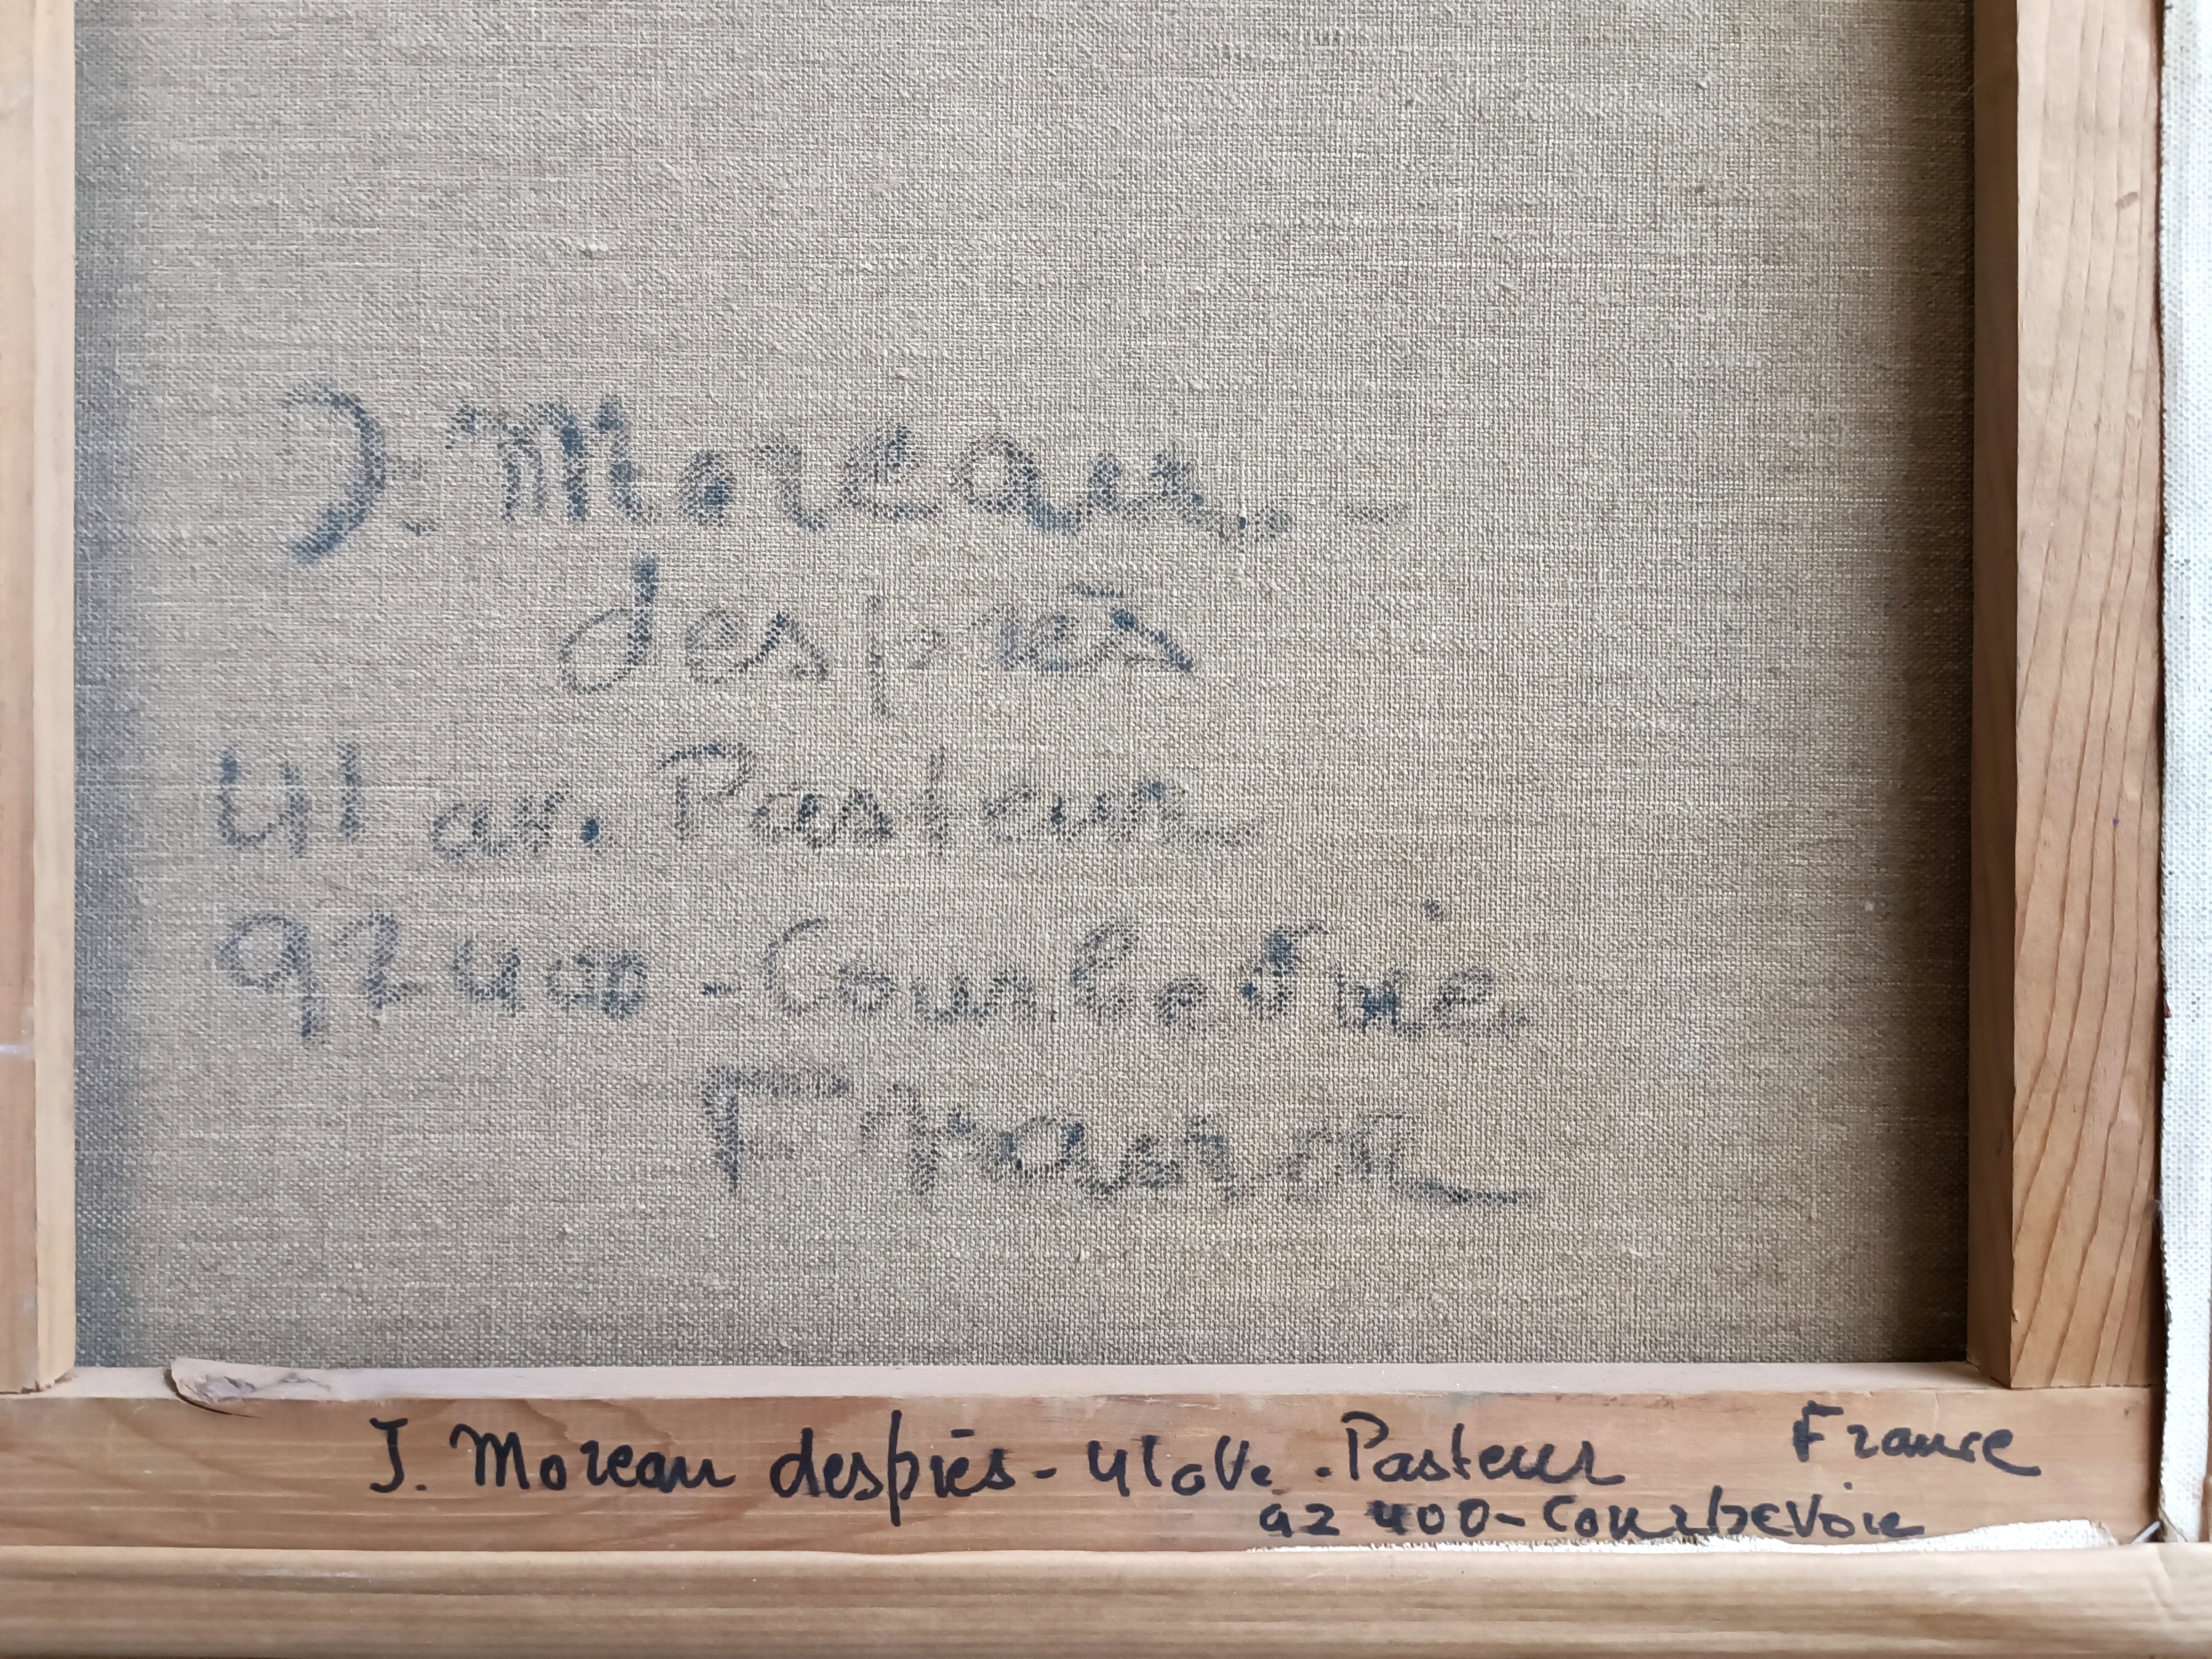 J. Moreau. -
després
41 av. Pasteur
92400 - Courbevoie
France
J. Moreau després - 41 ave. Pasteur France
92 400 - Courbevoie